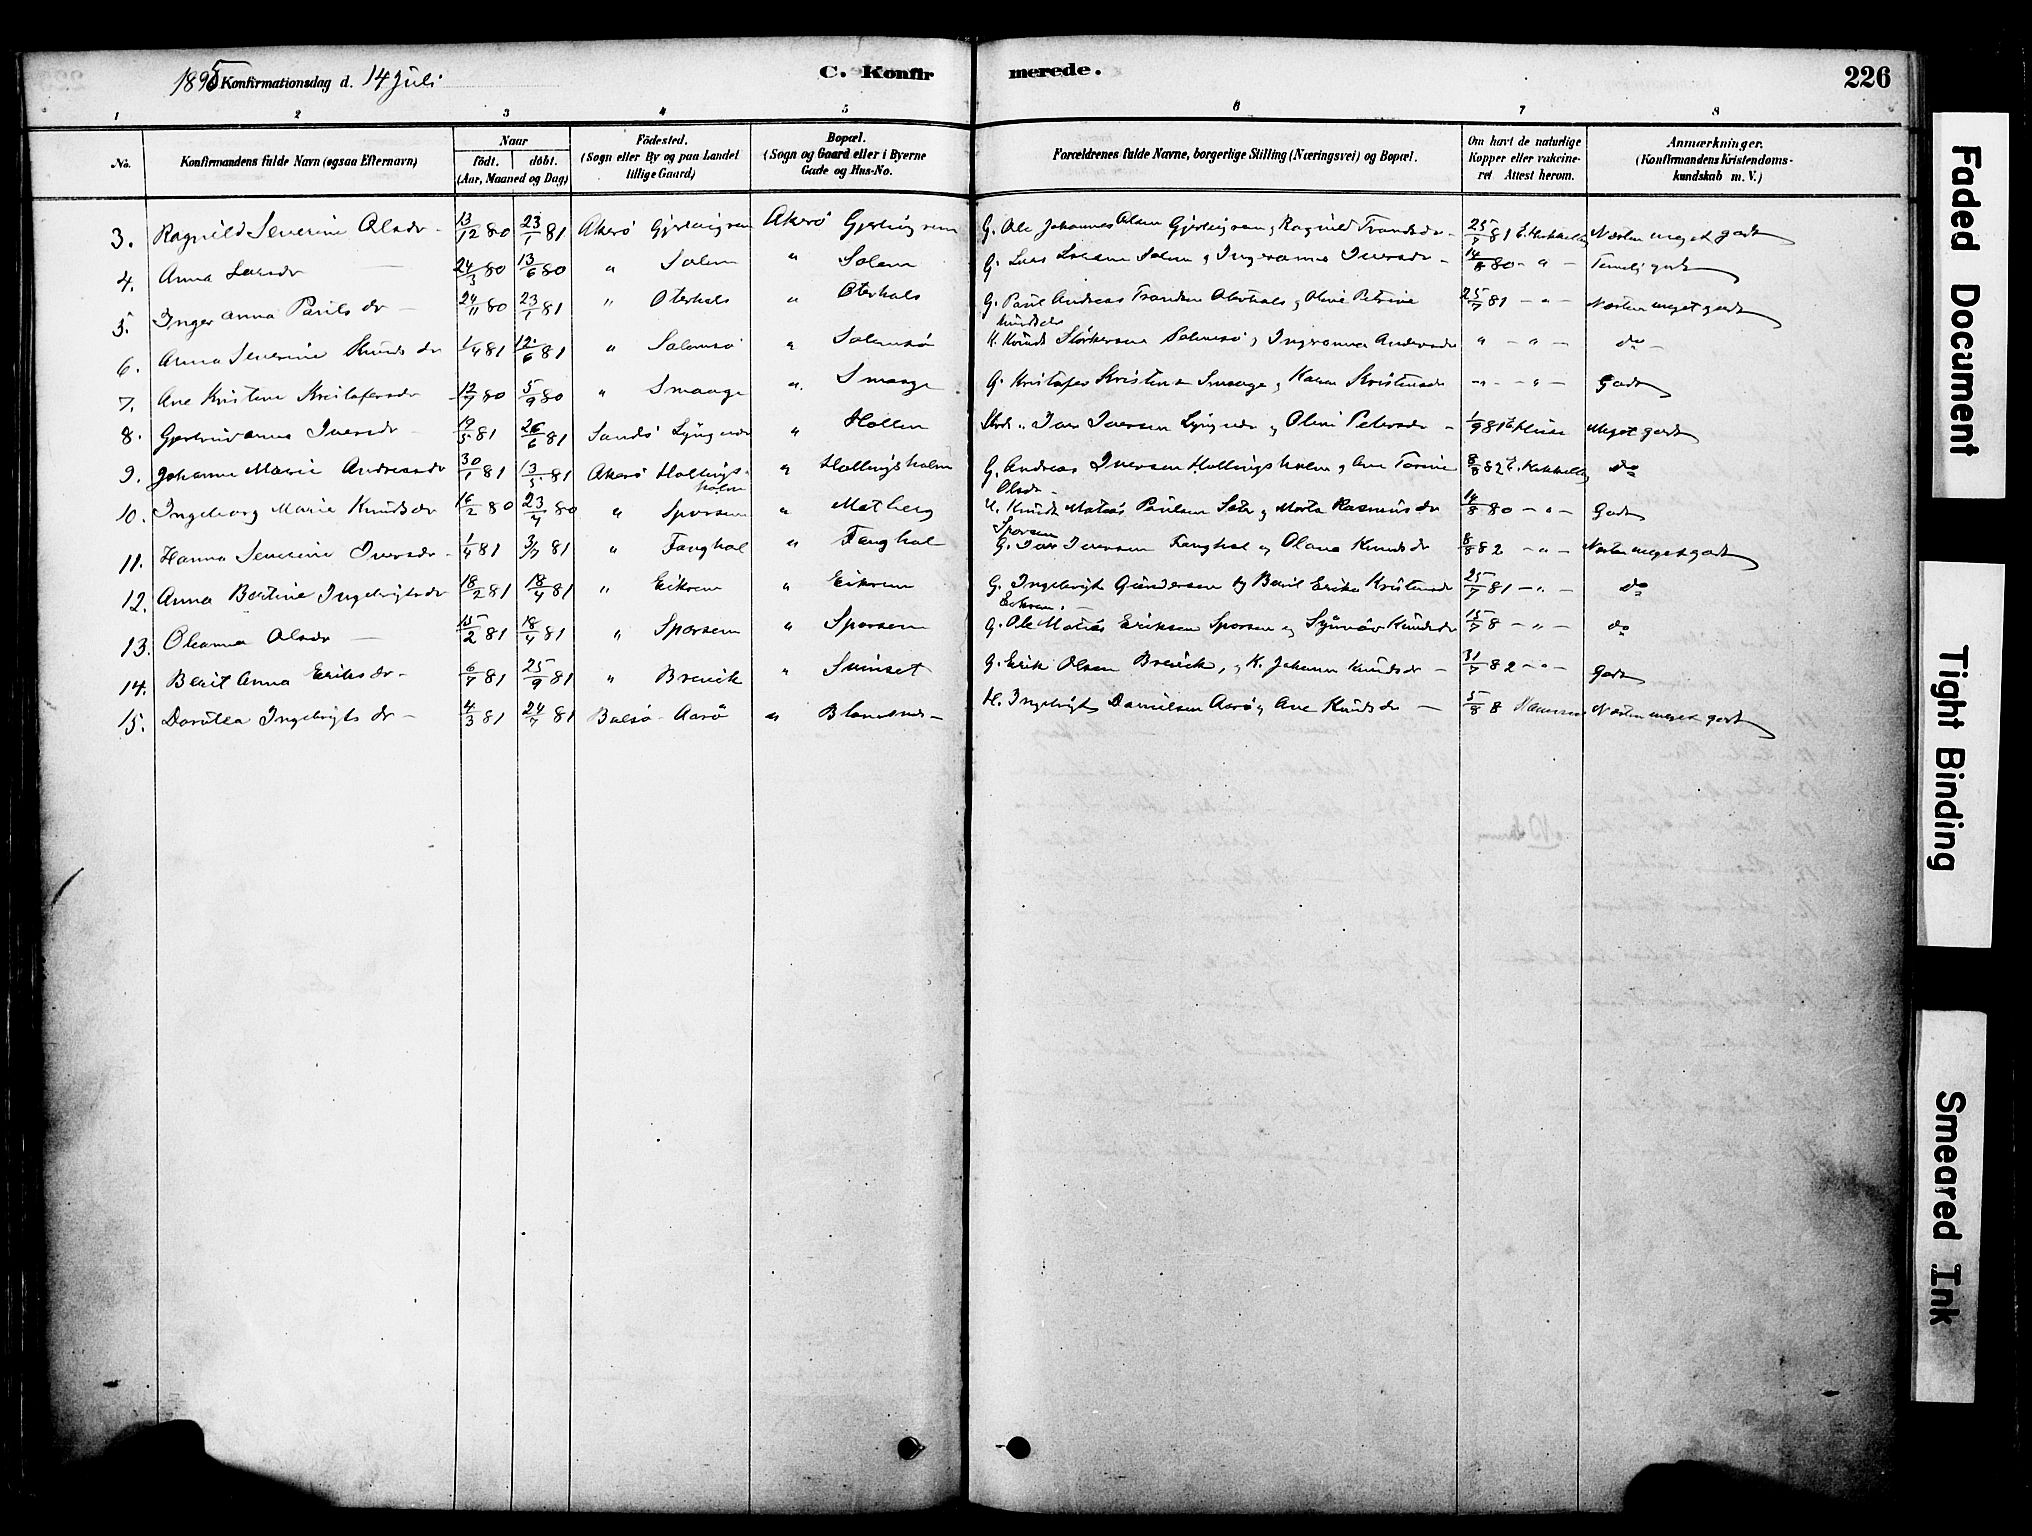 1895 Konfirmationsdag d. 14 Juli
C. Konfirmerede.
226
1 2 3 4 5 6 7 8
No.
Konfirmandens fulde Navn (ogsaa Efternavn)
Naar
födt. döbt.
(Aar, Maaned og Dag)
Födested.
(Sogn eller By og paa Landet
tillige Gaard)
Bopæl.
(Sogn og Gaard eller i Byerne
Gade og Hus-No.
Forældrenes fulde Navne, borgerlige Stilling (Næringsvei) og Bopæl.
Om havt de naturlige
Kopper eller vakcine-
ret Attest herom.
Anmærkninger.
(Konfirmandens Kristendoms-
kundskab m. V.)
3. Ragnild Severine Olsdr 13/12 80 23/1 81 Akerö Akerö G. Ole Johannes Olsen og Ragnild 25/7 81 Næsten meget godt
4. Anna Larsdr 24/3 80 13/6 80 " Solem " Solem G. Lars Larsen Solem og Ingeranna Iversdr 14/8 80 - " - Temmelig godt
5. Inger Anna Pauls dr 24/11 80 23/1 81 " Oterhals " Oterhals G. Paul Andreas Trondsen Oterhals og Oline Petrine Knudsdr 25/7 81 - " - Næsten meget godt
6. Anna Severine Knuds dr 1/4 81 12/6 81 " Solemsö " Solemsö Knud Størkersen Solemsö og Ingeranna Andersdr " - " - do -
7. Ane Kristine Kristofersdr 12/7 80 5/9 80 " Smaage " Smaage G. Kristofer Kristensen Smaage og Karen Kristensdr " - " - Godt
8. Gjertruanna Iversdr 19/5 81 26/6 81 Sandö " Hollen Iver Iversen og Oline Petersdr 1/9 81 Meget godt
9. Johanne Marie Andreasdr 30/1 81 13/5 81 Akerö Hollingsholm " Hollingsholm G. Andreas Iversen Hollingsholm og Ane Olsdr 8/8 82 do
10. Ingeborg Marie Knudsdr 16/2 80 23/4 80 " Sporsem " Malberg Knud Matias Paulsen og Marta Rasmusdr Sporsem 14/8 80 - " - Godt
11. Hanna Severine Iversdr 1/4 81 3/7 81 " Fanghol " Fanghol G. Iver Iversen Fanghol og Olana Knudsdr 8/8 82 - " - Næsten meget godt
12. Anna Bertine Ingebrigtsdr 18/2 81 18/4 81 " Eikrem " Eikrem G. Ingebrigt Gundersen og Beret Erika Kristensdr Eikrem 25/7 81 - " - do
13. Oleanna Olsdr 15/2 81 18/4 81 " Sporsem " Sporsem G. Ole Matias Eriksen Sporsem og Synnöv Knudsdr 15/7 8 - " - do
14. Berit Anna Eriksdr 6/7 81 25/9 81 " Breivik " G. Erik Olsen Breivik, og K. Johanna Knudsdr 31/7 82 - " - Godt
15. Dorotea Ingebrigts dr 4/3 81 24/7 81 Bolsö Aarö " Ingebrigt Danielsen Aarö og Ane Knudsdr 5/8 8 Næsten meget godt
Faded Document
Tight Binding
Smeared Ink